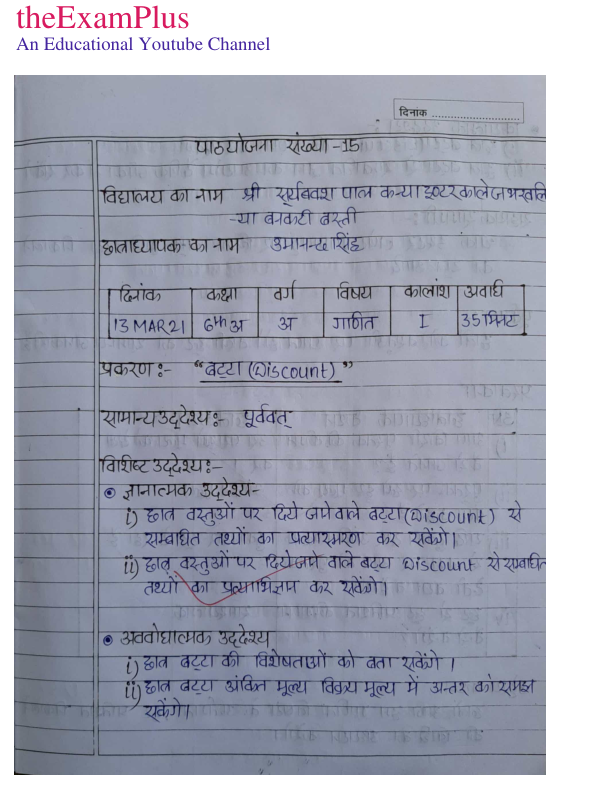 theExamPlus
An Educational Youtube Channel
दिनांक
पाठयोजना संख्या -15
विद्यालय का नाम श्री सूर्यबक्श पाल कन्या इण्टर कालेज
-या बनकटी बस्ती
छात्राध्यापक का नाम उमानन्द सिंह
दिनांक कक्षा वर्ग विषय कालांश अवधि
13 MAR 21 6th अ अ गणित I 35 मिनट
प्रकरण :- "बट्टा (Discount)"
सामान्य उद्देश्य :- पूर्ववत्
विशिष्ट उद्देश्य :-
ज्ञानात्मक उद्देश्य -
i) छात्र वस्तुओं पर दिये जाने वाले बट्टा (Discount) से
सम्बंधित तथ्यों का प्रत्यास्मरण कर सकेंगे।
ii) छात्र वस्तुओं पर दिये जाने वाले बट्टा Discount से सम्बंधित
तथ्यों का प्रत्याभिज्ञान कर सकेंगे।
अवबोधात्मक उद्देश्य
i) छात्र बट्टा की विशेषताओं को बता सकेंगे ।
ii) छात्र बट्टा अंकित मूल्य विक्रय मूल्य में अन्तर को समझ
सकेंगे।